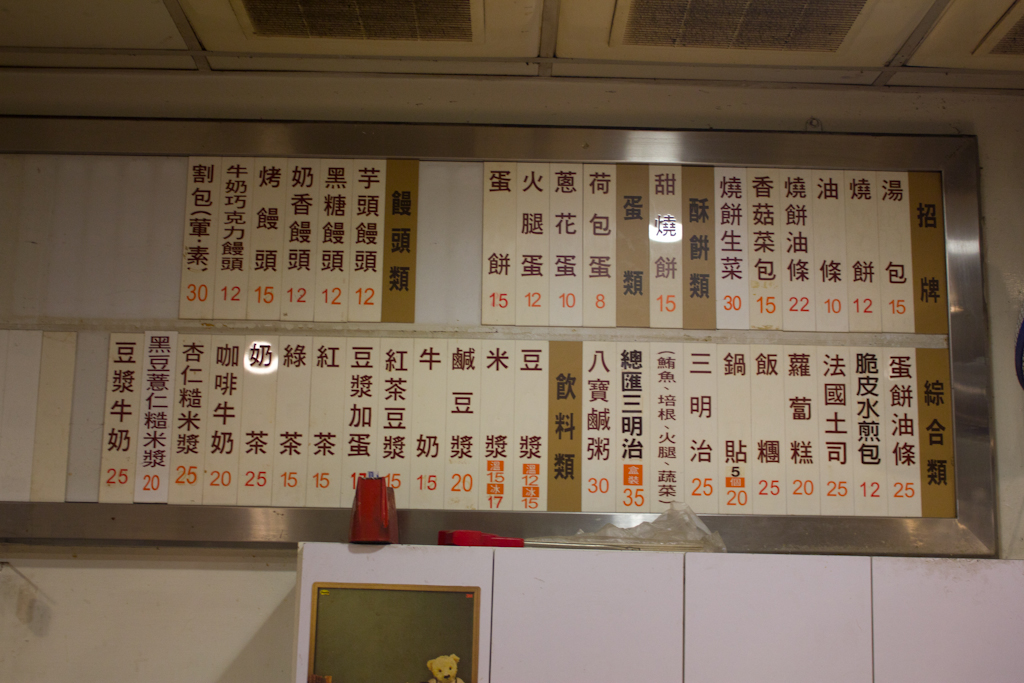 招牌
湯包 15
燒餅 12
油條 10
燒餅油條 22
香菇菜包 15
燒餅生菜 30
酥餅類
甜燒餅 15
蛋類
荷包蛋 8
蔥花蛋 10
火腿蛋 12
蛋餅 15
饅頭類
芋頭饅頭 12
黑糖饅頭 12
奶香饅頭 12
烤饅頭 15
牛奶巧克力饅頭 12
割包(葷.素) 30
綜合類
蛋餅油條 25
脆皮水煎包 12
法國土司 25
蘿蔔糕 20
飯糰 25
鍋貼 5個 20
三明治 25
(鮪魚、培根、火腿、蔬菜)
總匯三明治 盒裝 35
八寶鹹粥 30
飲料類
豆漿 溫12 冰15
米漿 溫15 冰17
鹹豆漿 20
牛奶 15
紅茶豆漿 15
豆漿加蛋
紅茶 15
綠茶 15
奶茶 25
咖啡牛奶 20
杏仁糙米漿 25
黑豆薏仁糙米漿 20
豆漿牛奶 25